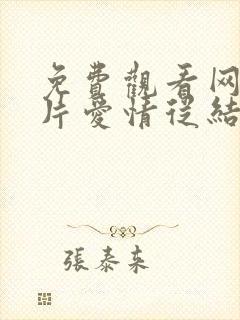 免費觀看网
片愛情從結
張泰来